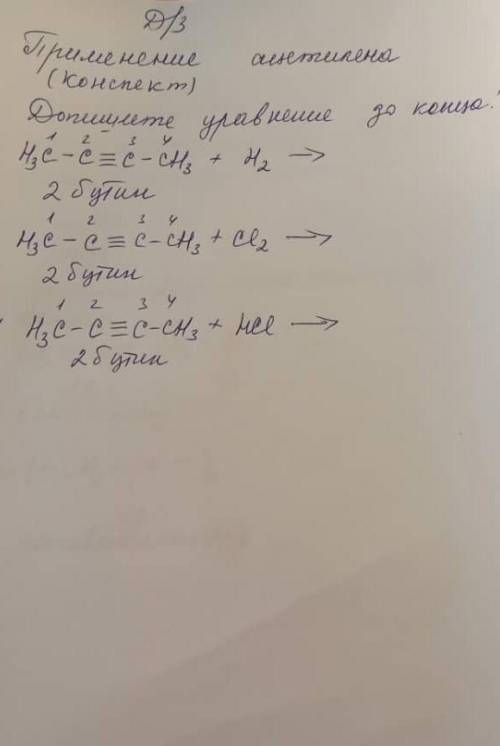 Д/З
Применение ацетилена
(Конспект)
Допишите уравнение до конца!
1 2 3 4
H₃C – C ≡ C – CH₃ + H₂ →
2 бутин
1 2 3 4
H₃C – C ≡ C – CH₃ + Cl₂ →
2 бутин
1 2 3 4
H₃C – C ≡ C – CH₃ + HCl →
2 бутин